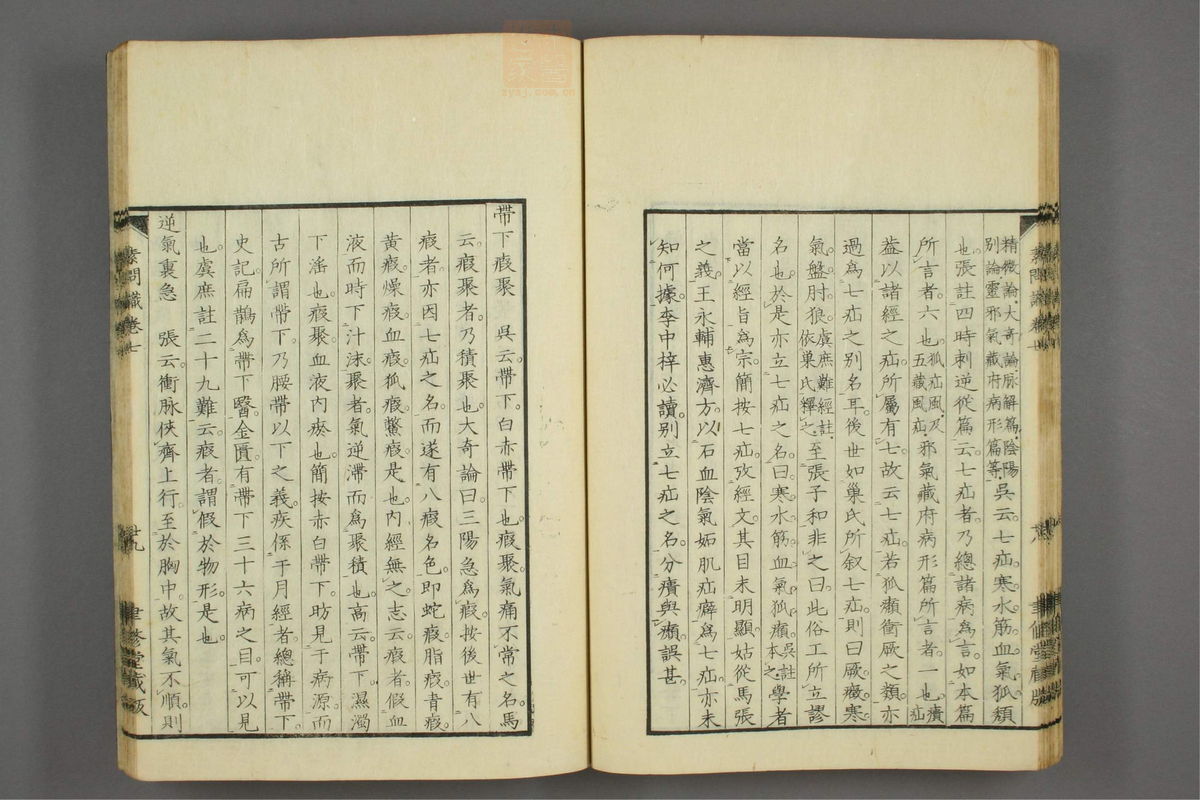 精微論大奇論脉解篇陰陽
別論靈邪氣藏府病形篇等吳云七疝寒水筋血氣狐㿗
也張註四時刺逆從篇云七疝者乃總諸病爲言如本篇
所言者六也狐疝風及五藏風疝邪氣藏府病形篇所言者一也㿉疝
葢以諸經之疝所屬有七故云七疝若狐㿗衝厥之類亦
過爲七疝之別名耳後世如巢氏所叙七疝則曰厥癥寒
氣盤胕狼虞庶難經註依巢氏釋之至張子和非之曰此俗工所立謬
名也於是亦立七疝之名曰寒水筋血氣狐㿗吳註本之學者
當以經旨爲宗簡按七疝攷經文其目未明顯姑從馬張
之義王永輔惠濟方以石血陰氣妬肌疝癖爲七疝亦未
知何據李中梓必讀別立七疝之名分㿉與㿗誤甚
帶下瘕聚 吳云帶下白赤帶下也瘕聚氣痛不常之名馬
云瘕聚者乃積聚也大奇論曰三陽急爲瘕按後世有八
瘕者亦因七疝之名而遂有八瘕名色即蛇瘕脂瘕青瘕
黃瘕燥瘕血瘕狐瘕鱉瘕是也內經無之志云瘕者假血
液而時下汁沫聚者氣逆滯而爲聚積也高云帶下濕濁
下淫也瘕聚血液內瘀也簡按赤白帶下昉見于病源而
古所謂帶下乃腰帶以下之義疾係于月經者總稱帶下
史記扁鵲爲帶下醫金匱有帶下三十六病之目可以見
也虞庶註二十九難云瘕者謂假於物形是也
逆氣裏急 張云衝脉俠齊上行至於胸中故其氣不順則
素問識卷七
十九
聿修堂藏版